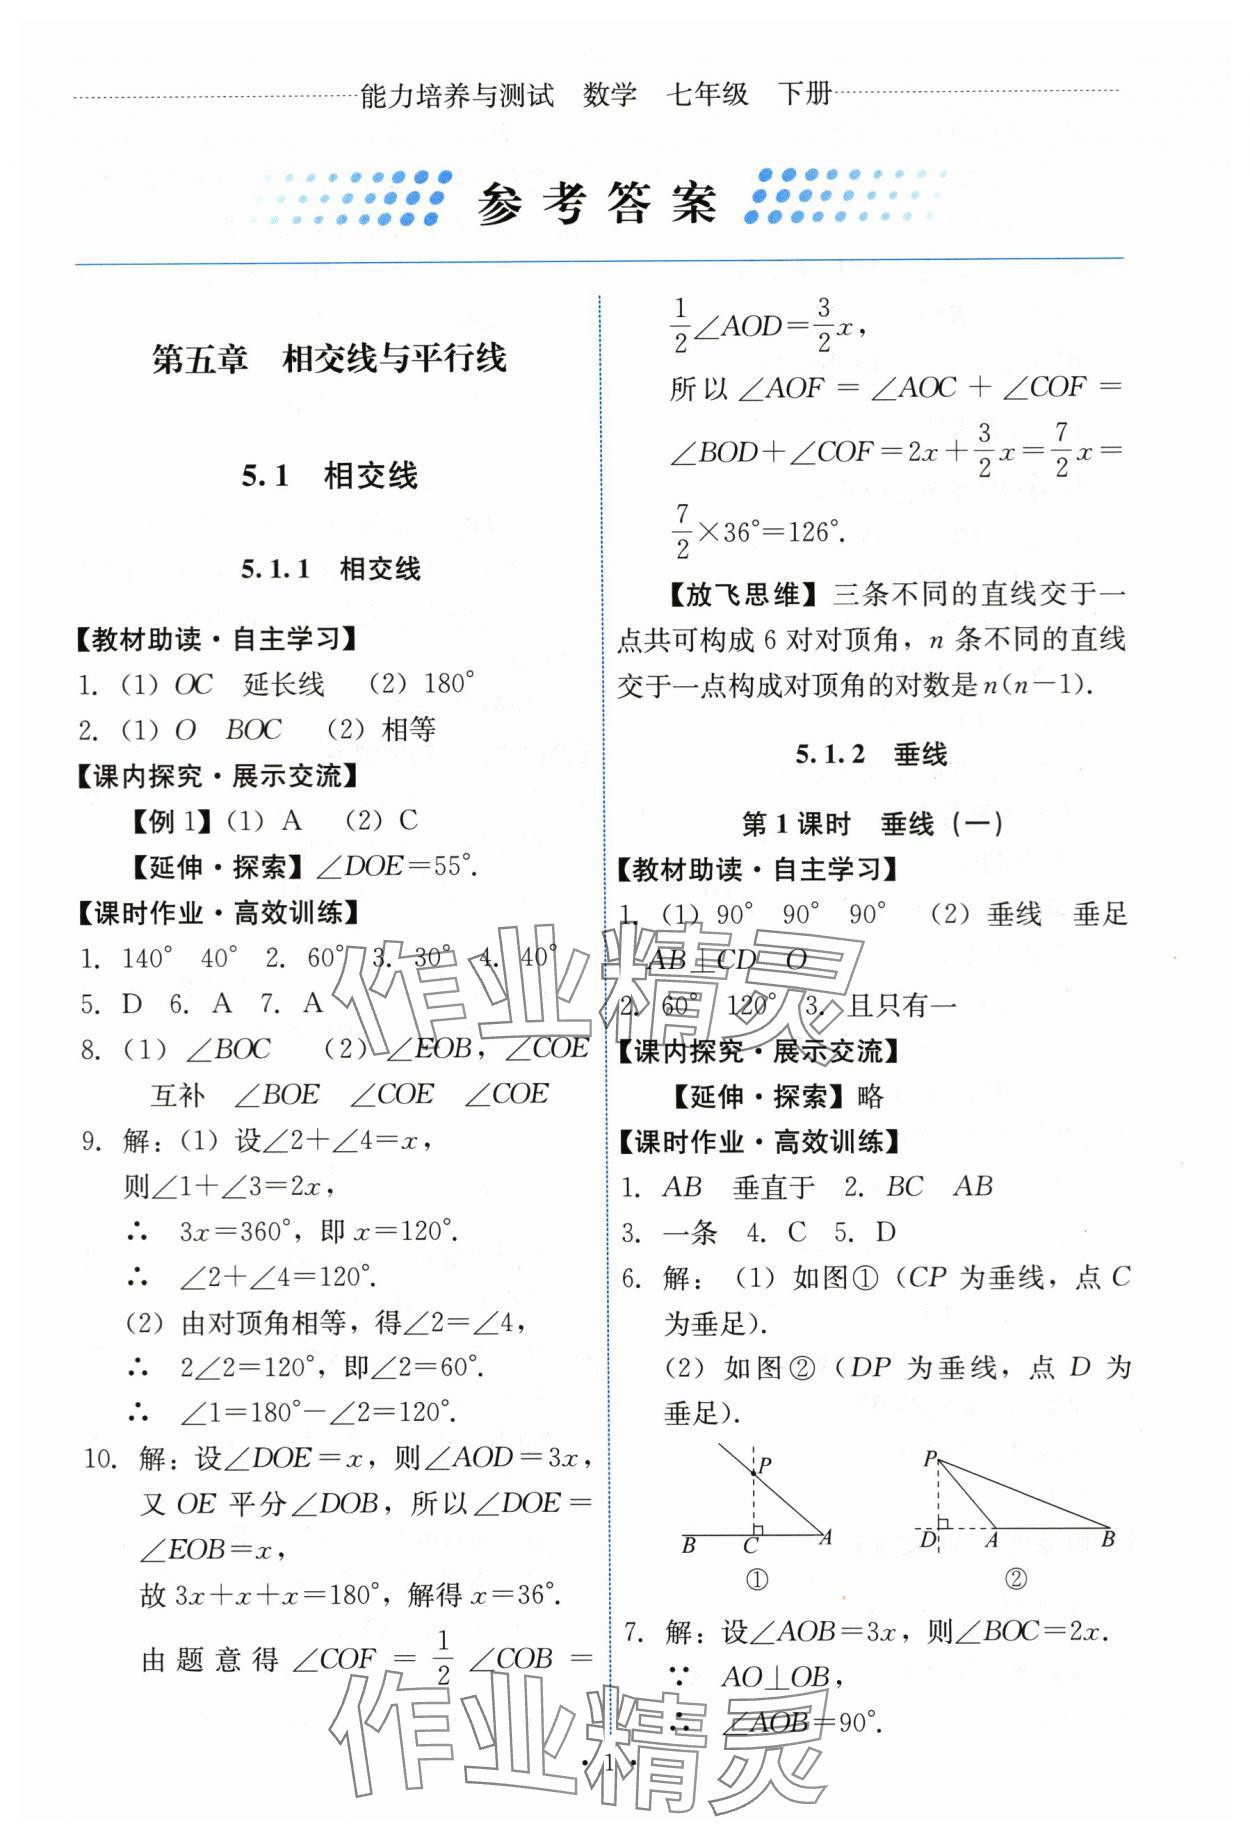 能力培养与测试 数学 七年级 下册
参考答案
第五章 相交线与平行线
5.1 相交线
5.1.1 相交线
【教材助读·自主学习】
1. (1) OC 延长线 (2) 180°
2. (1) O BOC (2) 相等
【课内探究·展示交流】
【例 1】(1) A (2) C
【延伸·探索】∠DOE=55°.
【课时作业·高效训练】
1. 140° 40° 2. 60° 3. 30° 4. 40°
5. D 6. A 7. A
8. (1) ∠BOC (2) ∠EOB, ∠COE
互补 ∠BOE ∠COE ∠COE
9. 解: (1) 设∠2+∠4=x,
则∠1+∠3=2x,
∴ 3x=360°, 即 x=120°.
∴ ∠2+∠4=120°.
(2) 由对顶角相等, 得∠2=∠4,
∴ 2∠2=120°, 即∠2=60°.
∴ ∠1=180°-∠2=120°.
10. 解: 设∠DOE=x, 则∠AOD=3x,
又 OE 平分∠DOB, 所以∠DOE=
∠EOB=x,
故 3x+x+x=180°, 解得 x=36°.
由题意得 ∠COF = 1/2 ∠COB =
1/2 ∠AOD=3/2 x,
所以 ∠AOF = ∠AOC + ∠COF =
∠BOD+∠COF=2x+3/2 x=7/2 x=
7/2×36°=126°.
【放飞思维】三条不同的直线交于一
点共可构成 6 对对顶角, n 条不同的直线
交于一点构成对顶角的对数是 n(n-1).
5.1.2 垂线
第 1 课时 垂线 (一)
【教材助读·自主学习】
1. (1) 90° 90° 90° (2) 垂线 垂足
AB⊥CD O
2. 60° 120° 3. 且只有一
【课内探究·展示交流】
【延伸·探索】略
【课时作业·高效训练】
1. AB 垂直于 2. BC AB
3. 一条 4. C 5. D
6. 解: (1) 如图① (CP 为垂线, 点 C
为垂足).
(2) 如图② (DP 为垂线, 点 D 为
垂足).
P
B C A
①
P
D A B
②
7. 解: 设∠AOB=3x, 则∠BOC=2x.
∵ AO⊥OB,
∴ ∠AOB=90°.
· 1 ·
作业精灵
作业精灵